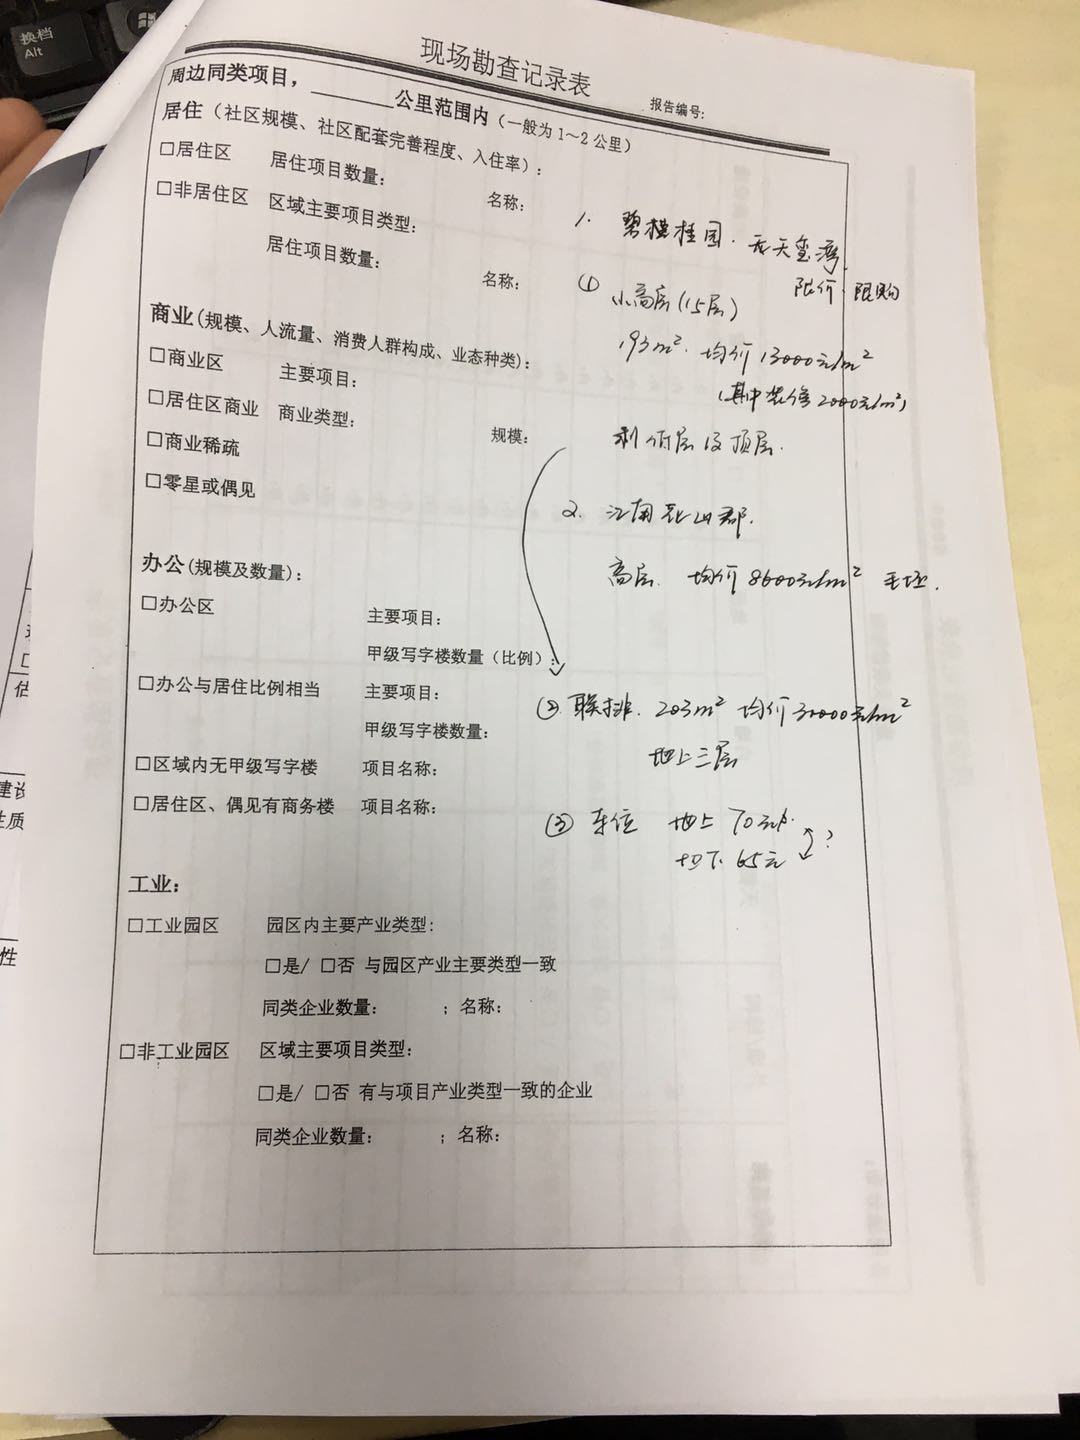 换档
Alt
现场勘查记录表
报告编号:
周边同类项目，________公里范围内（一般为1～2公里）
居住（社区规模、社区配套完善程度、入住率）:
□居住区 居住项目数量: 名称:
□非居住区 区域主要项目类型:
居住项目数量: 名称:
1. 碧桂园·天玺湾
限价·限购
① 小高层(15层)
193m² 均价13000元/m²
(其中装修2000元/m²)
剩低层及顶层.
商业(规模、人流量、消费人群构成、业态种类):
□商业区 主要项目:
□居住区商业 商业类型: 规模:
□商业稀疏
□零星或偶见
2. 江南 山郡.
高层. 均价8600元/m² 毛坯.
办公(规模及数量):
□办公区 主要项目:
甲级写字楼数量(比例):
□办公与居住比例相当 主要项目:
甲级写字楼数量:
□区域内无甲级写字楼 项目名称:
□居住区、偶见有商务楼 项目名称:
② 联排. 203m² 均价30000元/m²
地上三层
③ 车位 地上 70元/
地下 65元 ?
工业:
□工业园区 园区内主要产业类型:
□是/ □否 与园区产业主要类型一致
同类企业数量: ；名称:
□非工业园区 区域主要项目类型:
□是/ □否 有与项目产业类型一致的企业
同类企业数量: ；名称:
估
建设
性质
性